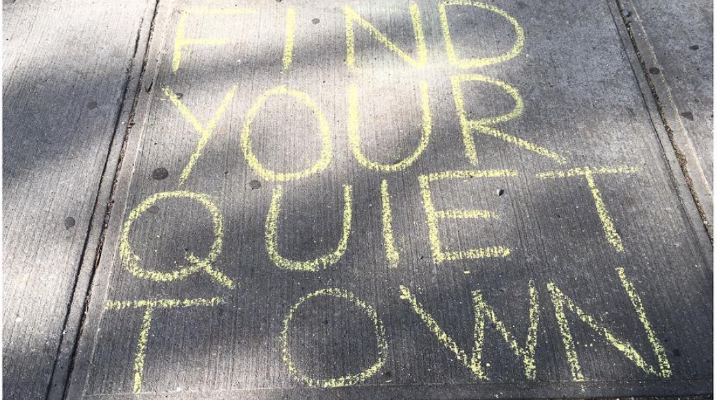 FIND
YOUR
QUIET
TOWN